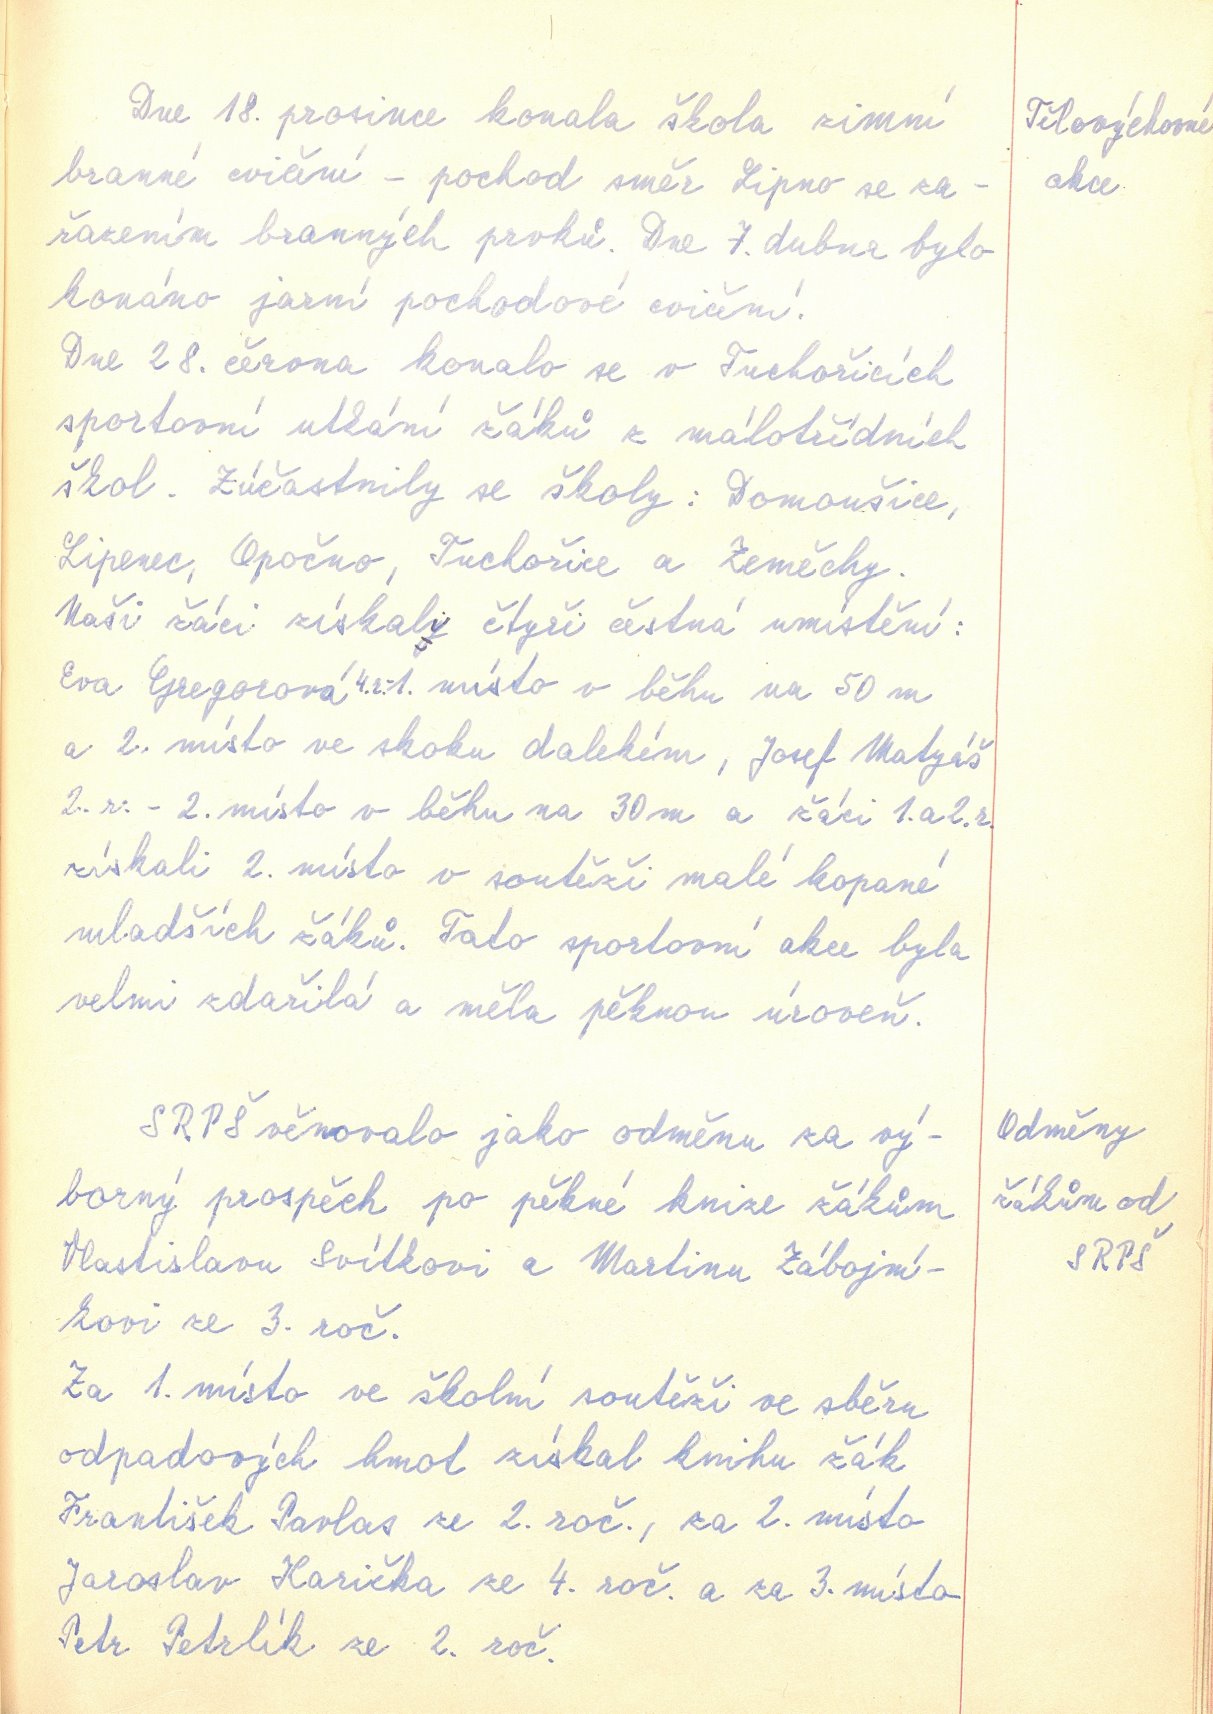 Dne 18. prosince konala škola zimní
branné cvičení - pochod směr Lipno se za-
řazením branných prvků. Dne 7. dubna bylo
konáno jarní pochodové cvičení.
Dne 28. června konalo se v Tuchořicích
sportovní utkání žáků z málotřídních
škol. Zúčastnily se školy: Domoušice,
Lipenec, Opočno, Tuchořice a Zeměchy.
Naši žáci získali čtyři čestná umístění:
Eva Gregorová 4.r.-1. místo v běhu na 50 m
a 2. místo ve skoku dalekém, Josef Matyáš
2. r. - 2. místo v běhu na 30 m a žáci 1. a 2. r.
získali 2. místo v soutěži malé kopané
mladších žáků. Tato sportovní akce byla
velmi zdařilá a měla pěknou úroveň.
Tělovýchovné
akce
SRPŠ věnovalo jako odměnu za vý-
borný prospěch po pěkné knize žákům
Vlastislavu Svítkovi a Martinu Zábojní-
kovi ze 3. roč.
Za 1. místo ve školní soutěži ve sběru
odpadových hmot získal knihu žák
František Pavlas ze 2. roč., za 2. místo
Jaroslav Harička ze 4. roč. a za 3. místo
Petr Petrlík ze 2. roč.
Odměny
žákům od
SRPŠ